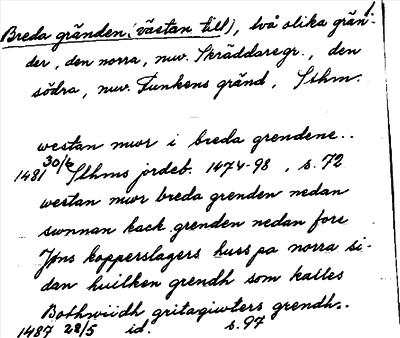 1.
Breda gränden (västan till), två olika grän-
der, den norra, nuv. Skräddaregr., den
södra, nuv. Funkens gränd, Sthm.
westan mwr i breda grendene..
1481 30/6 Sthms jordeb. 1474-98, s. 72
westan mwr breda grenden nedan
swnnan kack grenden nedan fore
Jøns kopperslagers hwss pa norra si-
dan huilken grendh som kalles
Bothwiidh gritagiwters grendh..
1487 28/5 id. s. 97